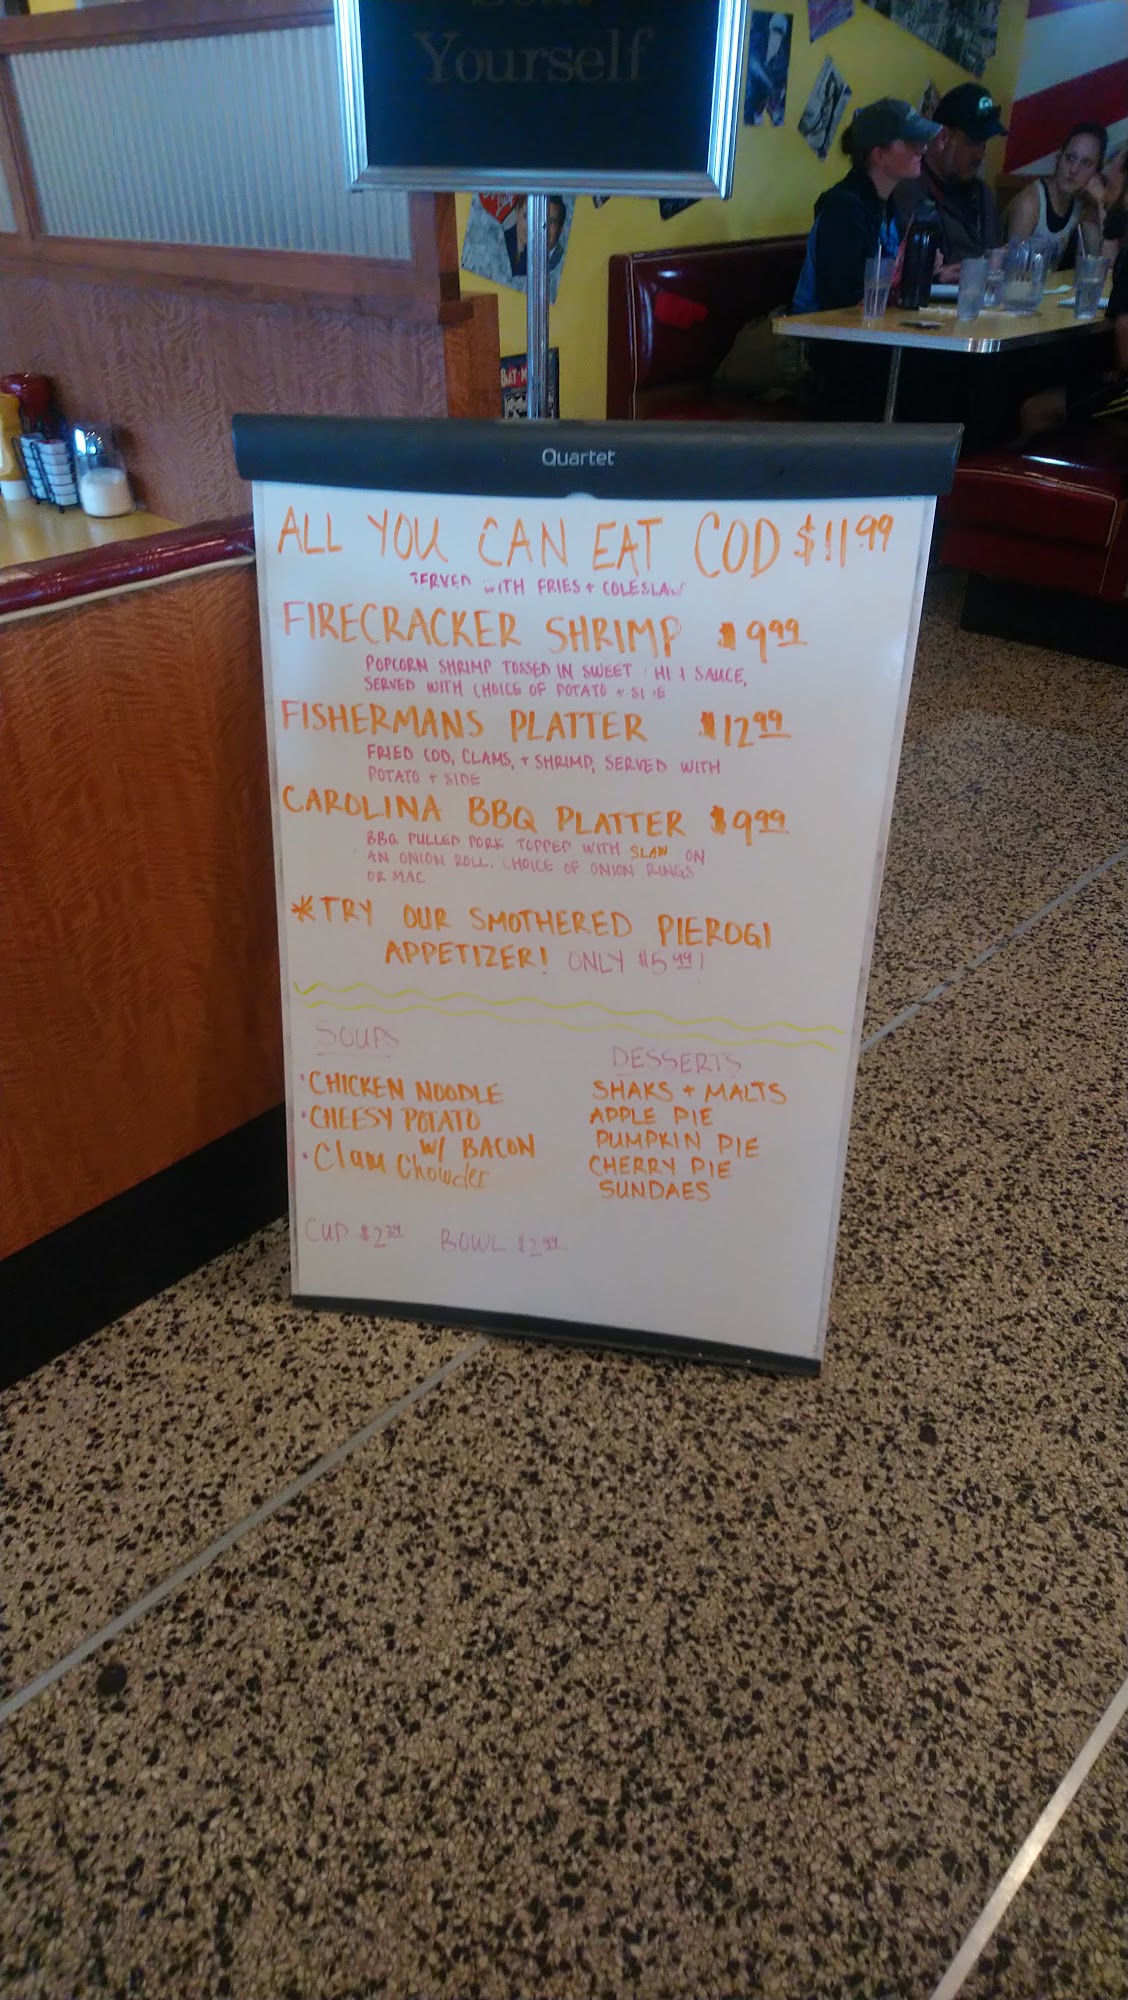 Yourself
Quartet
ALL YOU CAN EAT COD $11.99
SERVED WITH FRIES + COLESLAW
FIRECRACKER SHRIMP $9.99
POPCORN SHRIMP TOSSED IN SWEET SAUCE,
SERVED WITH CHOICE OF POTATO +
FISHERMANS PLATTER $12.99
FRIED COD, CLAMS, + SHRIMP, SERVED WITH
POTATO + SIDE
CAROLINA BBQ PLATTER $9.99
BBQ PULLED PORK TOPPED WITH SLAW ON
AN ONION ROLL. CHOICE OF ONION RINGS
OR MAC
*TRY OUR SMOTHERED PIEROGI
APPETIZER! ONLY $5.99!
SOUPS
• CHICKEN NOODLE
• CHEESY POTATO
W/ BACON
• Clam Chowder
CUP $2.29 BOWL $2.99
DESSERTS
SHAKS + MALTS
APPLE PIE
PUMPKIN PIE
CHERRY PIE
SUNDAES